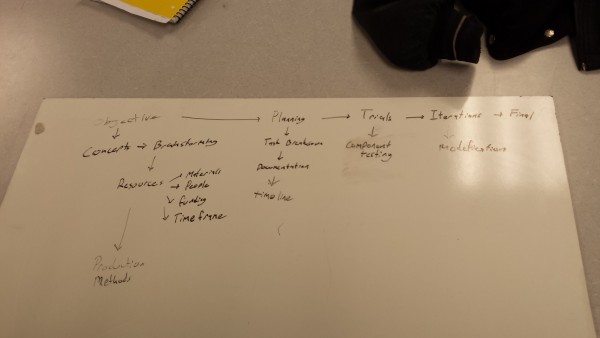 Objective → Planning → Trials → Iterations → Final
Concepts → Brainstorming
Task Breakdown
Component
Testing
Modifications
Resources → Materials
→ People
↘ Funding
↓ Timeframe
Documentation
timeline
Production
Methods